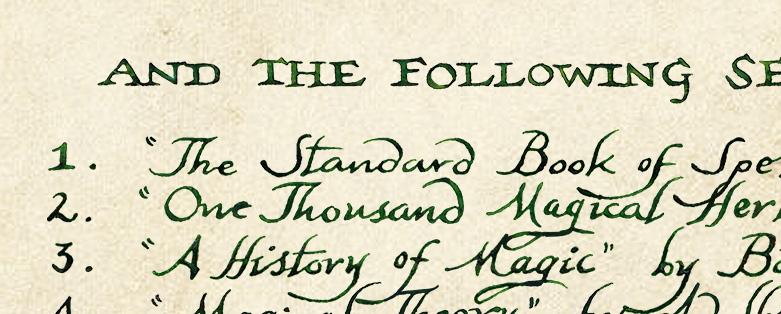 AND THE FOLLOWING SE
1. "The Standard Book of Spe
2. "One Thousand Magical Her
3. "A History of Magic" by Ba
4. "Magical Theory" by A